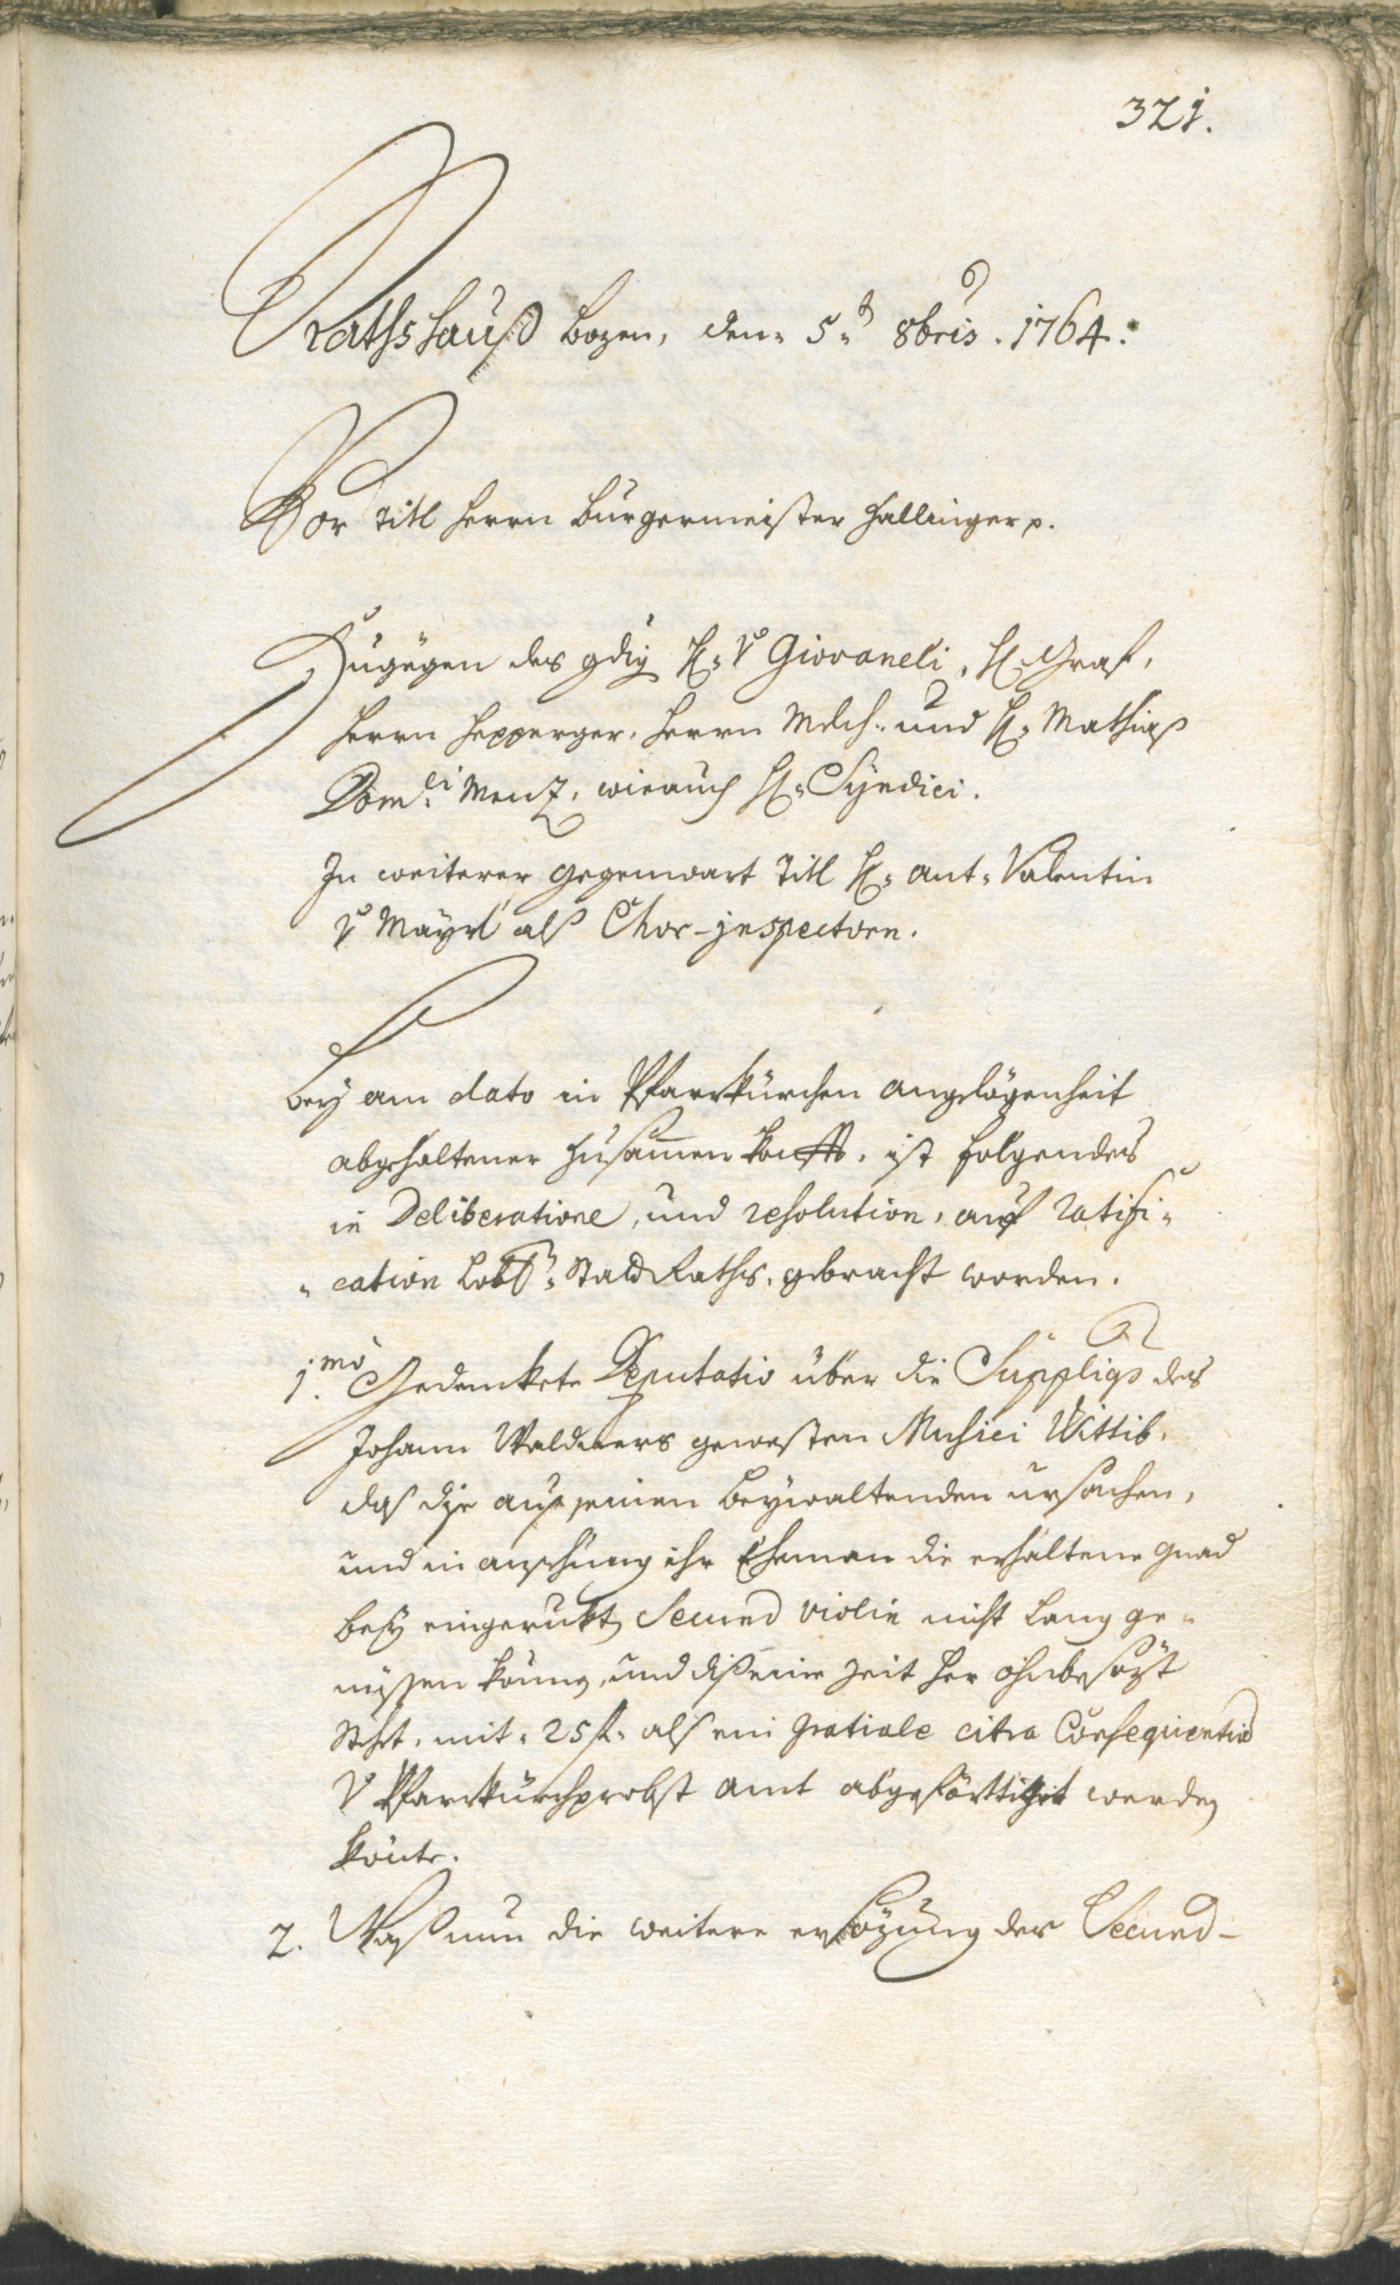 321.
Rathshauß Bozen, den 5.t 8bris. 1764.
Vor Titl Herrn Burgermeister Hallinger p.
Zugegen des gdig H. v Giovaneli, H. Graf,
Herrn Hepperger, Herrn Melch. und H. Mathiaß
Dom.ci Menz, wie auch H. Syndici.
In weiterer gegenwart Titl H. Ant. Valentin
v Mayrl alß Chor-jnspectorn.
Bey am dato in Pfarrkürchen angelögenheit
abgehaltener Zusamenkonfft, ist folgendes
in Deliberatione, und resolution, auf ratifi-
cation Lobl. StadtRaths, gebracht worden.
1.mo Gedenckte Deputatio über die Suppliqs des
Johann Waldners gewesten Musici Wittib,
daß dise auß jenen beywaltenden ursachen,
und in ansehung ihr Eheman die erhaltene gnad
bey eingerukt Secund violin nicht lang ge-
nüssen könen, und dise eine Zeit her ohnbesözt
steht, mit 25 f. alß ein gratiale citra Consequentia
v Pfarrkürchprobst amt abgeförttiget werden
könte.
2. Waß nun die weitere ersözung der Secund-